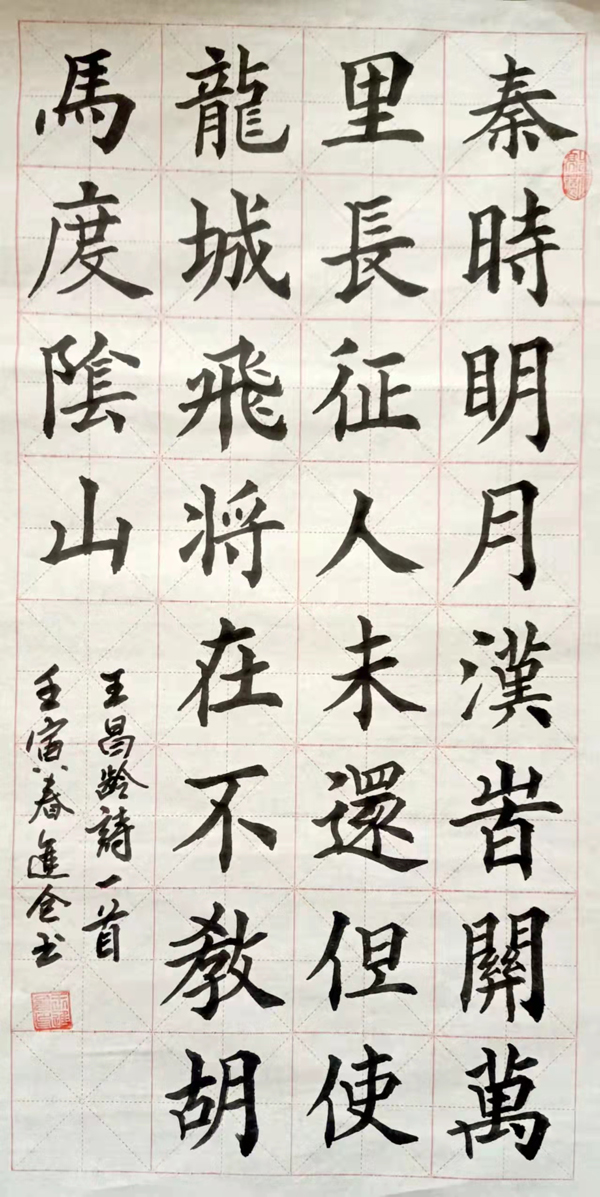 秦時明月漢旹關萬
里長征人未還但使
龍城飛将在不教胡
馬度陰山
王昌龄詩一首
壬寅春進全书